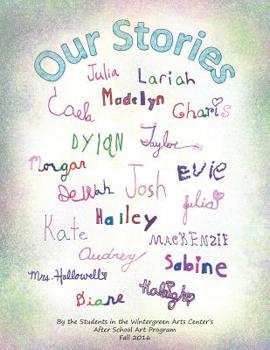 Our Stories
Julia Lariah
Caela Madelyn Charis
DYlAN Taylor
Morgan EVIE
Delilah Josh Julia
Hailey
Kate MACKENZIE
Audrey Sabine
Mrs. Hallowell
Diane Haleigh
By the Students in the Wintergreen Arts Center's
After School Art Program
Fall 2016